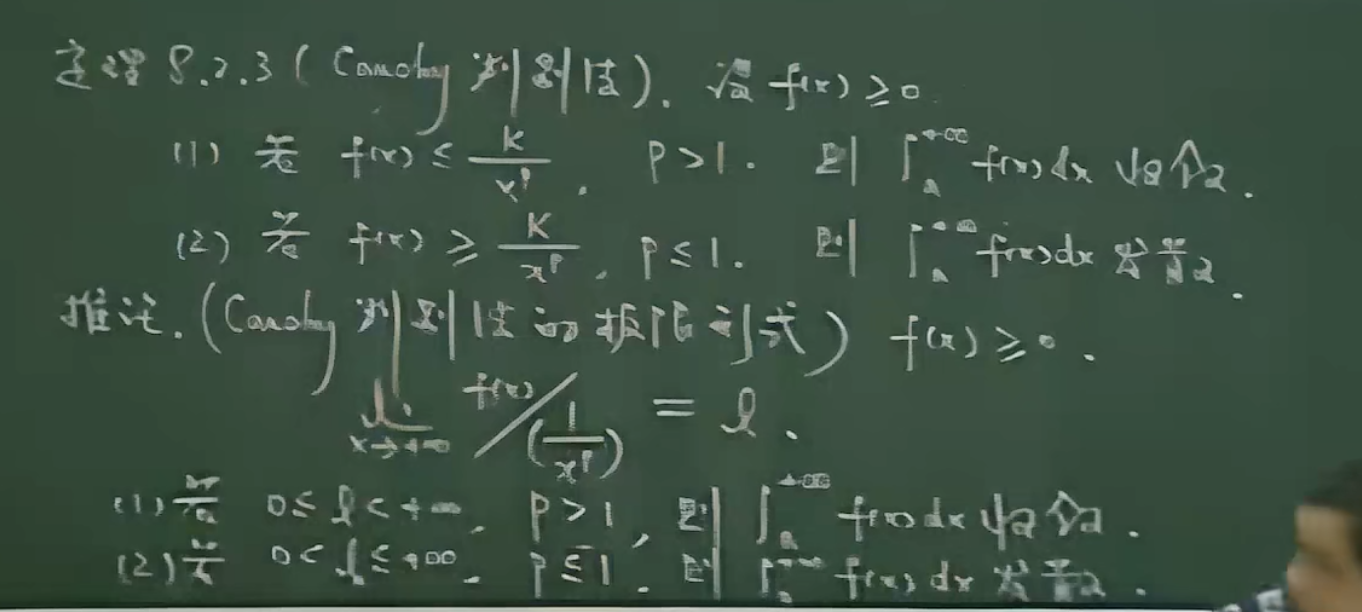 定理8.2.3(Cauchy判别法). 设 f(x)≥0
(1) 若 f(x) ≤ K/x^p, p>1. 则 ∫_a^{+∞} f(x)dx 收敛.
(2) 若 f(x) ≥ K/x^p, p≤1. 则 ∫_a^{+∞} f(x)dx 发散.
推论.(Cauchy判别法的极限形式) f(x)≥0.
lim_{x→+∞} f(x)/(1/x^p) = l.
(1)若 0≤l<+∞, p>1, 则 ∫_a^{+∞} f(x)dx 收敛.
(2)若 0<l≤+∞, p≤1, 则 ∫_a^{+∞} f(x)dx 发散.